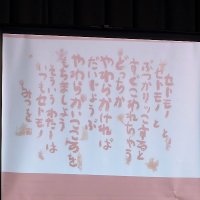 セトモノと
セトモノと
ぶつかりっこすると
すぐこわれちゃう
どっちか
やわらかければ
だいじょうぶ
やわらかいこころを
もちましょう
そういうわたしは
いつもセトモノ
みつを